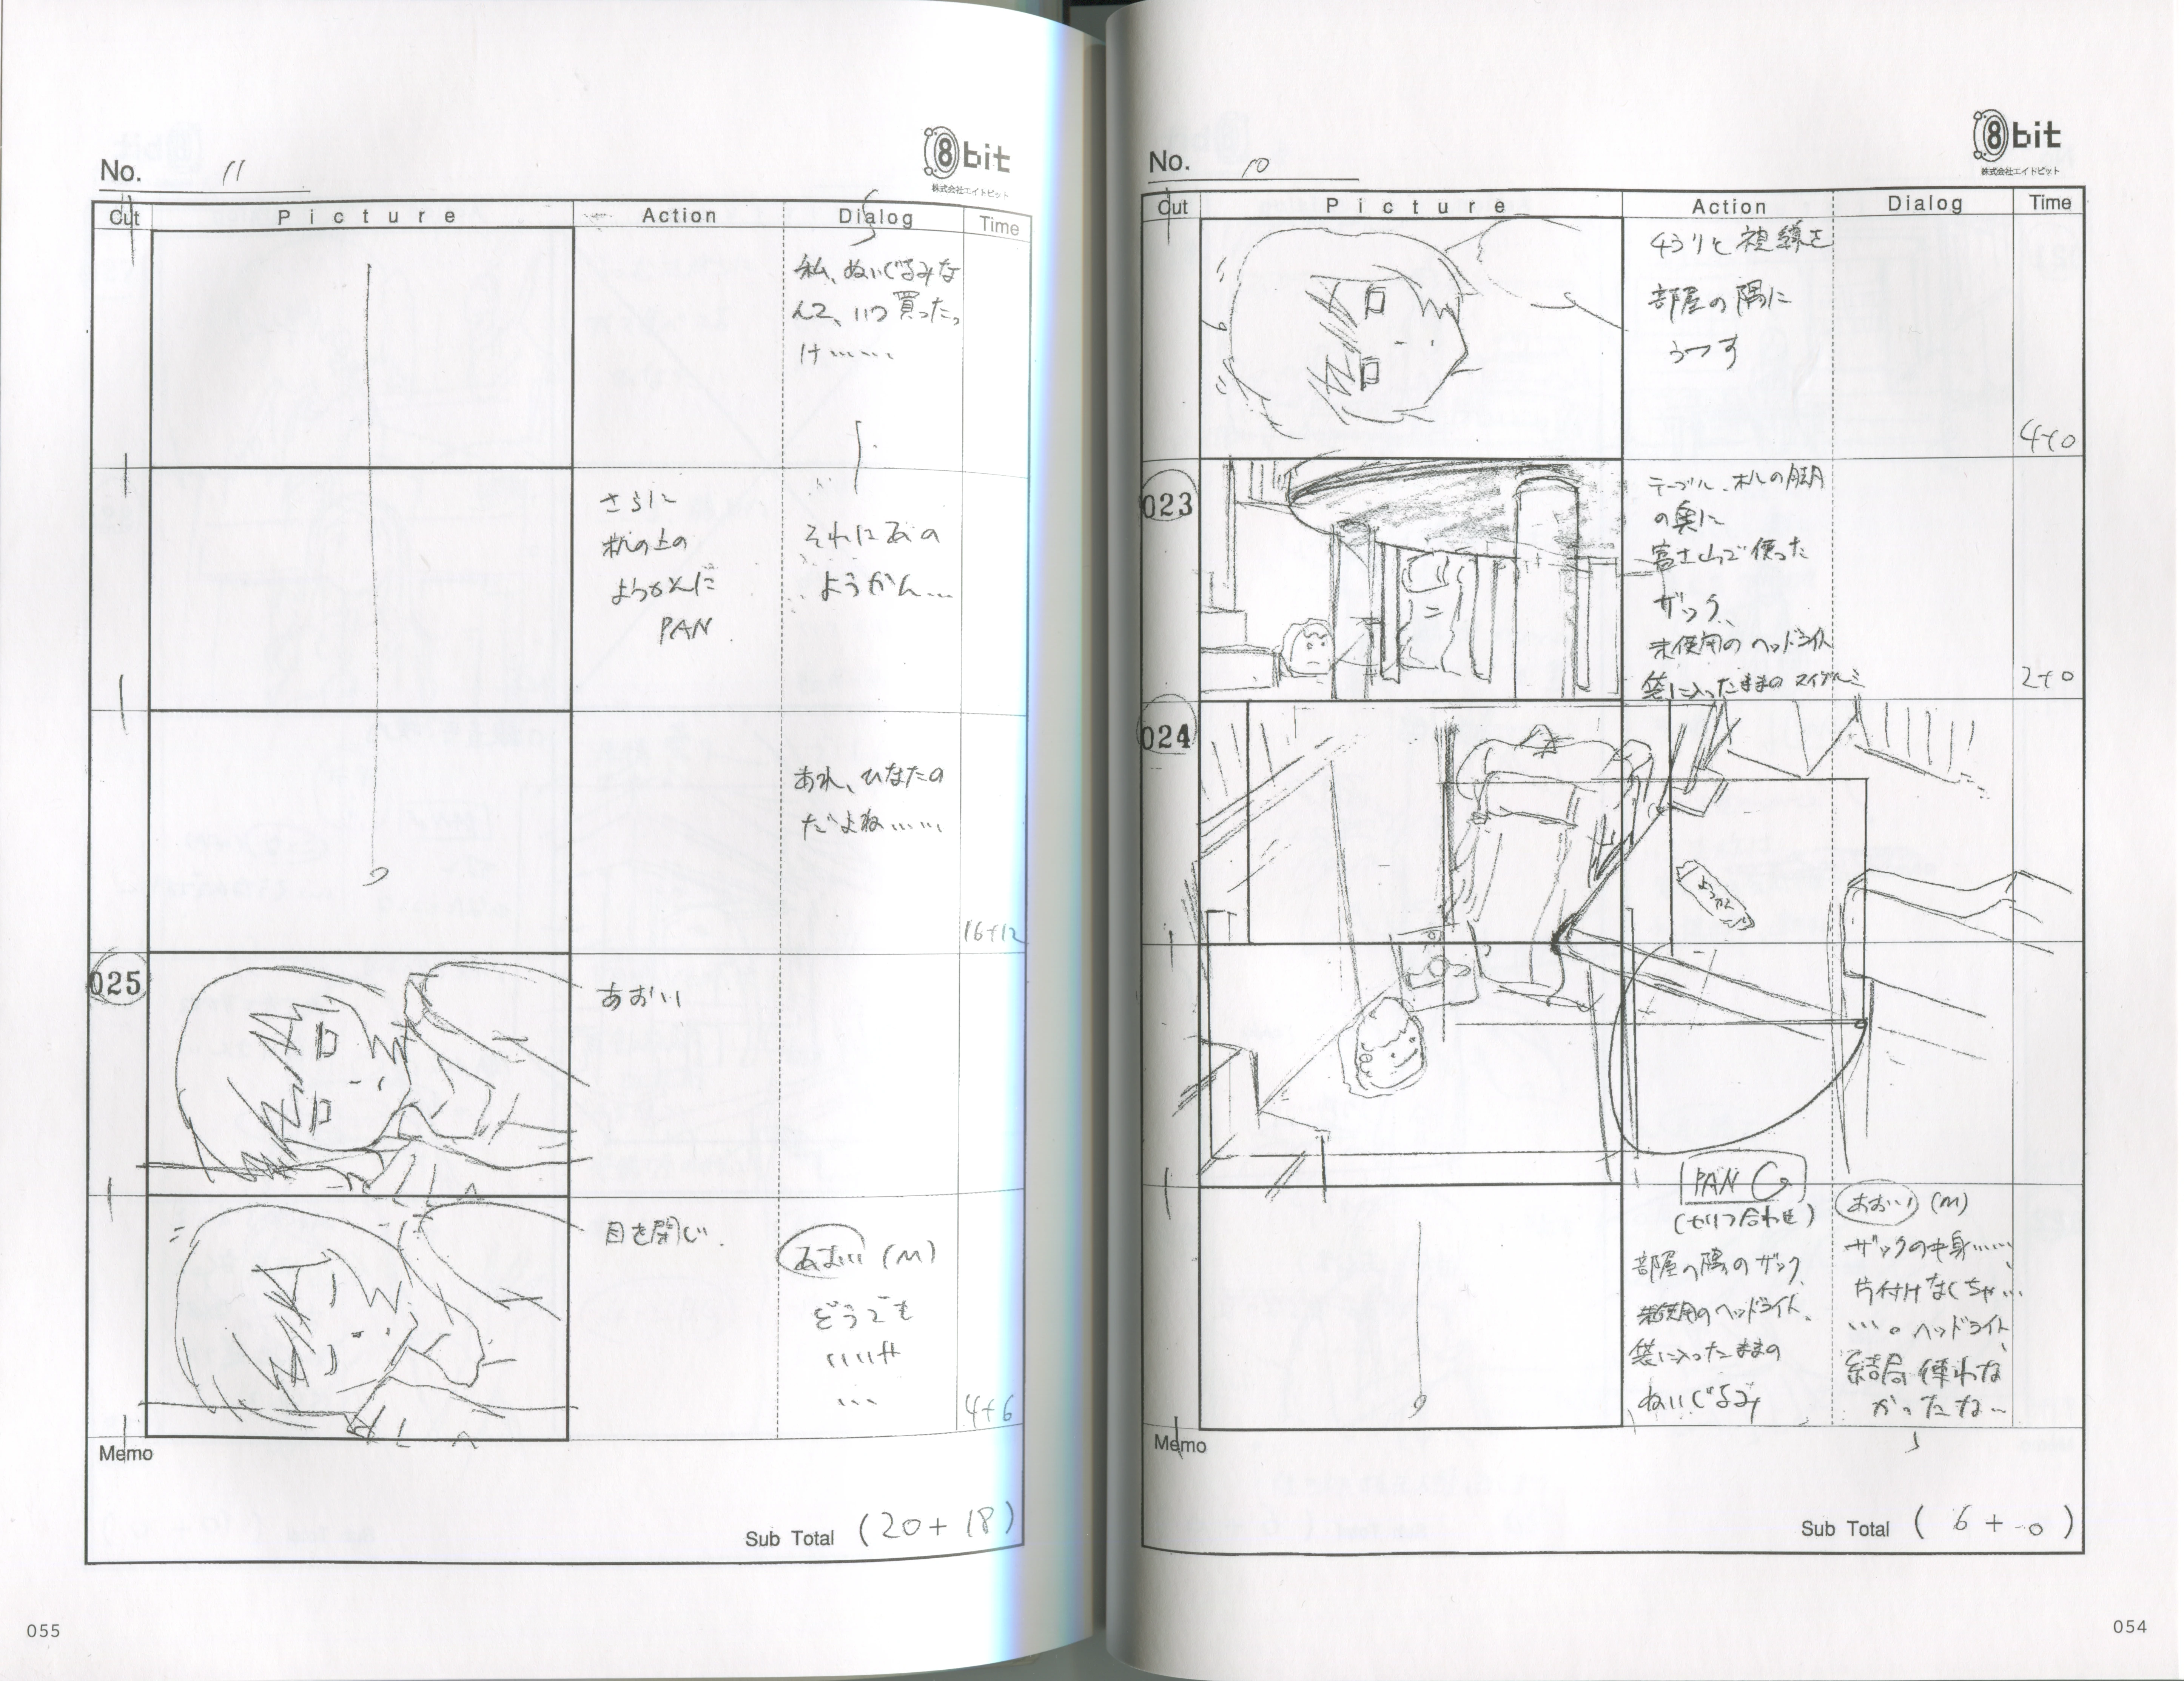 No. 10
8bit
株式会社エイトビット
Cut
Picture
Action
Dialog
Time
ちらりと視線を
部屋の隅に
うつす
4+0
023
テーブル、机の脚
の奥に
富士山で使った
ザック、
未使用のヘッドライト
袋に入ったままのヌイグルミ
2+0
024
ようかん
PAN
(セリフ合わせ)
部屋の隅のザック、
未使用のヘッドライト、
袋に入ったままの
ぬいぐるみ
あおい (M)
ザックの中身……
片付けなくちゃ…
…。ヘッドライト、
結局使わな
かったな…
Memo
Sub Total ( 6 + 0 )
054
No. 11
8bit
株式会社エイトビット
Cut
Picture
Action
Dialog
Time
私、ぬいぐるみな
んて、いつ買ったっ
け……
さらに
机の上の
ようかんに
PAN
それにあの
ようかん…
あれ、ひなたの
だよね……
16+12
025
あおい
目を閉じ、
あおい (M)
どうでも
いいや
…
4+6
Memo
Sub Total (20+18)
055